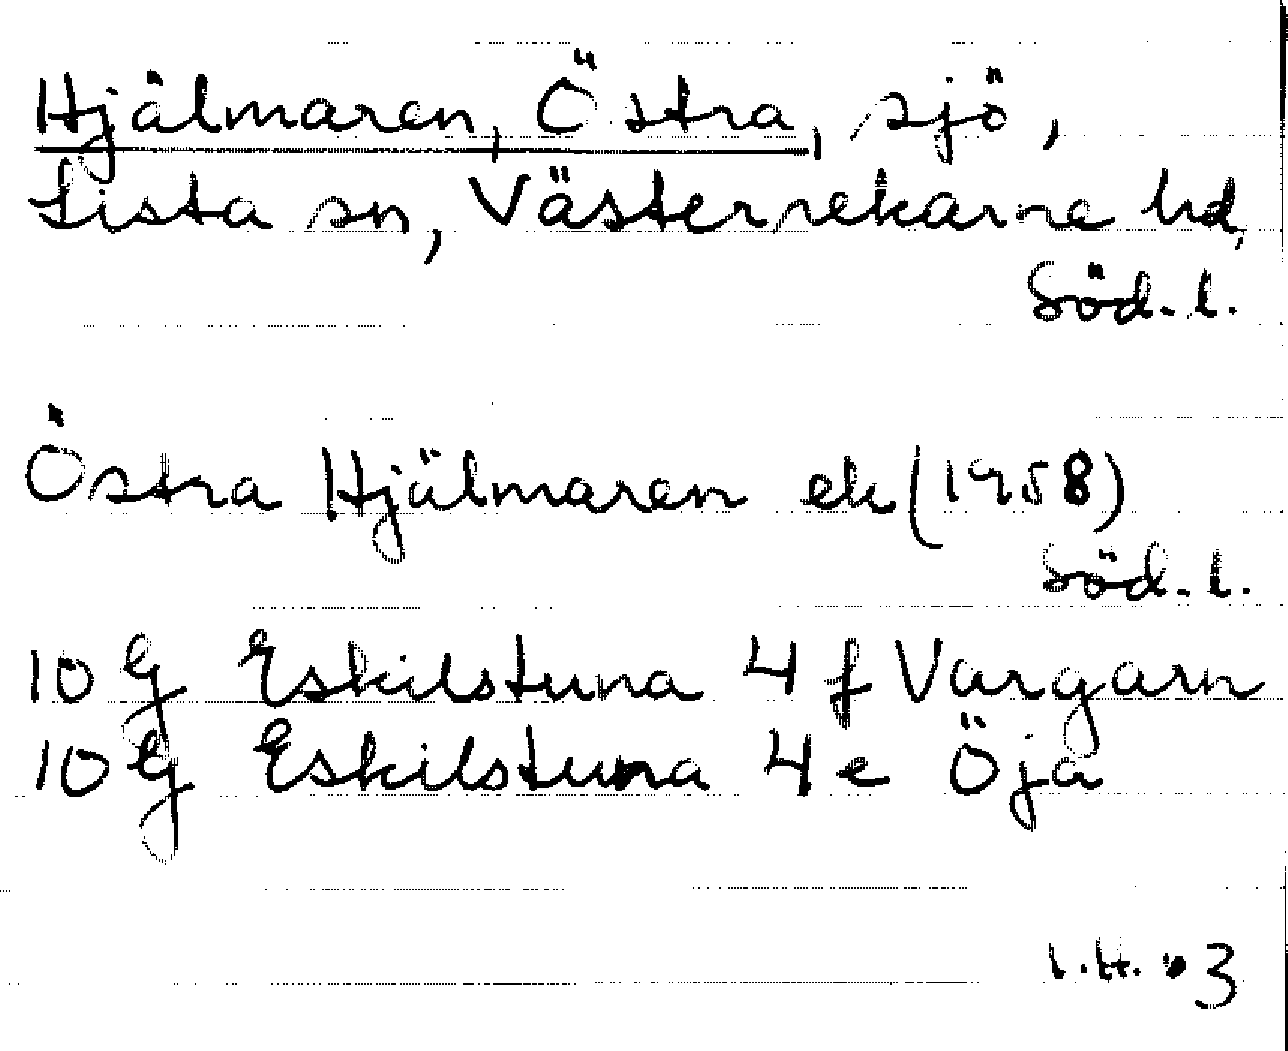 Hjälmaren, Östra, sjö,
Lista sn, Västerrekarne hd,
Söd. l.
Östra Hjälmaren ek (1958)
Söd. l.
10 G Eskilstuna 4 f Vargarn
10 G Eskilstuna 4 e Öja